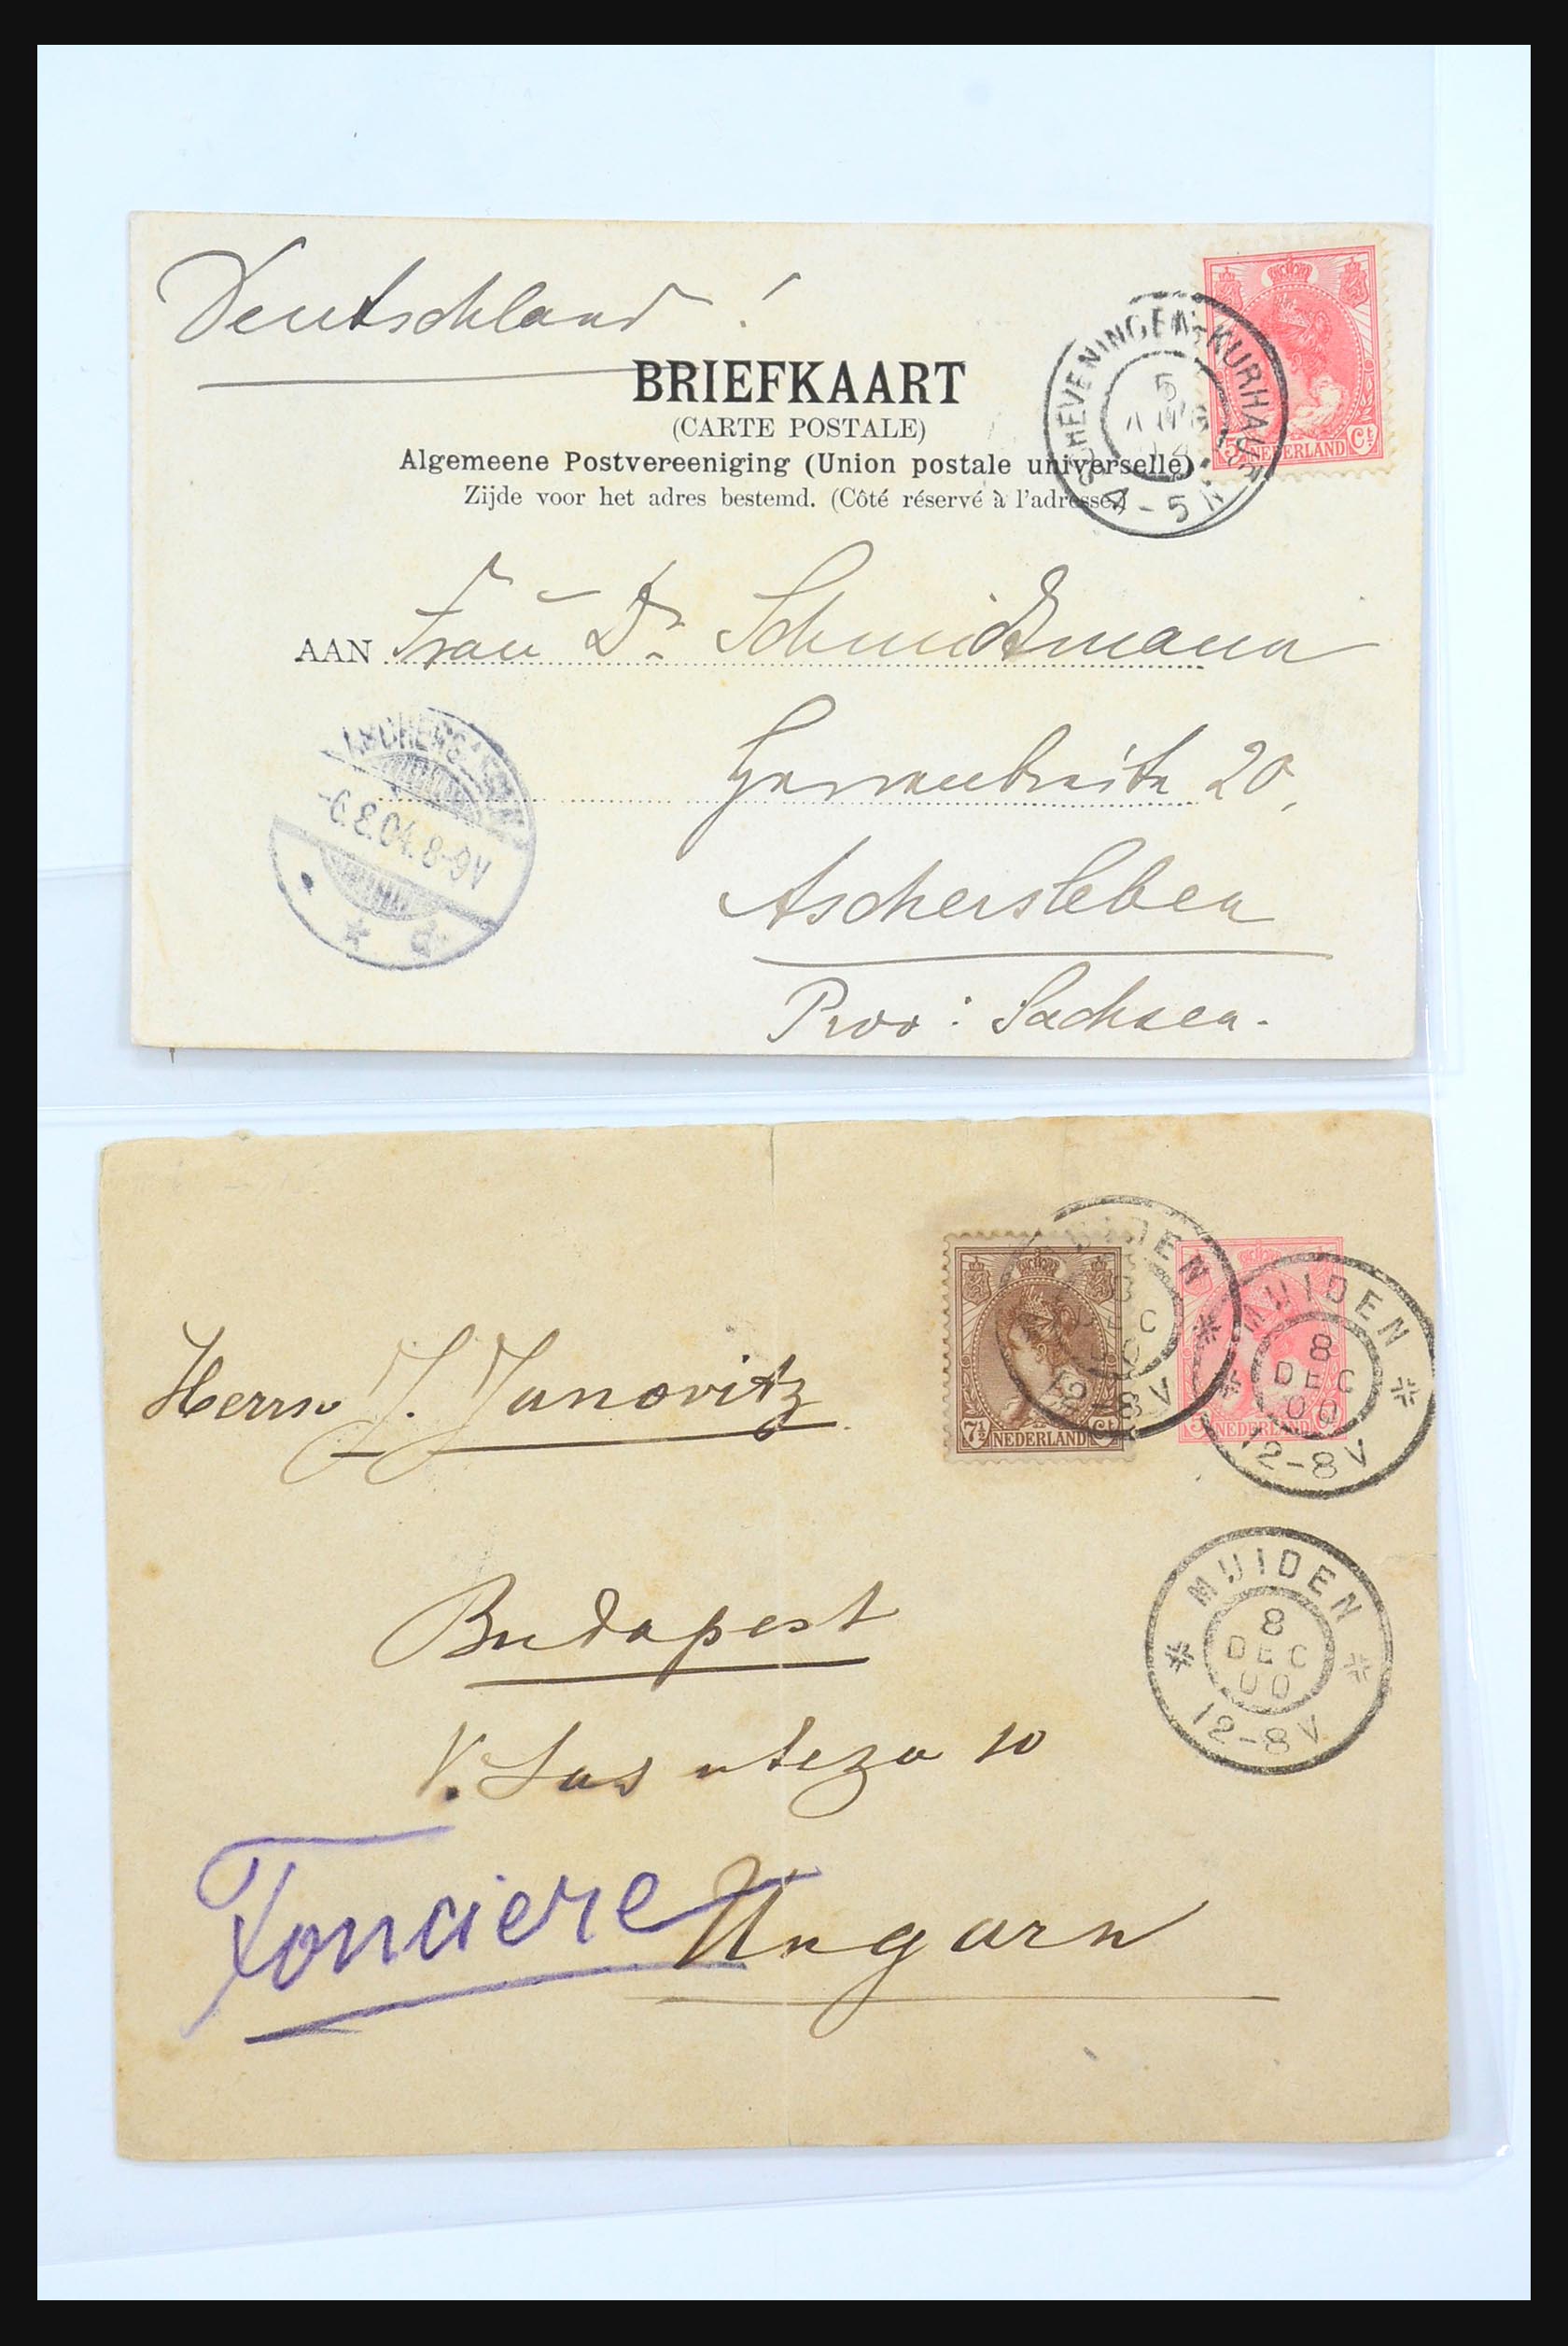 Deutschland!
BRIEFKAART
(CARTE POSTALE)
Algemeene Postvereeniging (Union postale universelle).
Zijde voor het adres bestemd. (Côté réservé à l'adresse.)
5 Ct. NEDERLAND
SCHEVENINGEN-KURHAUS
5
AUG
4-5 N
AAN Frau Dr. Schmidtmann
Herrenbreite 20,
Aschersleben
Prov: Sachsen.
ASCHERSLEBEN
-6.8.04. 8-9V
* d
7½ NEDERLAND Ct
5 NEDERLAND
MUIDEN
8
DEC
00
12-8V
MUIDEN
8
DEC
00
12-8V
Herrn J. Janovitz
Budapest
MUIDEN
8
DEC
00
12-8V
V. Sas utcza 10
Fonciere
Ungarn